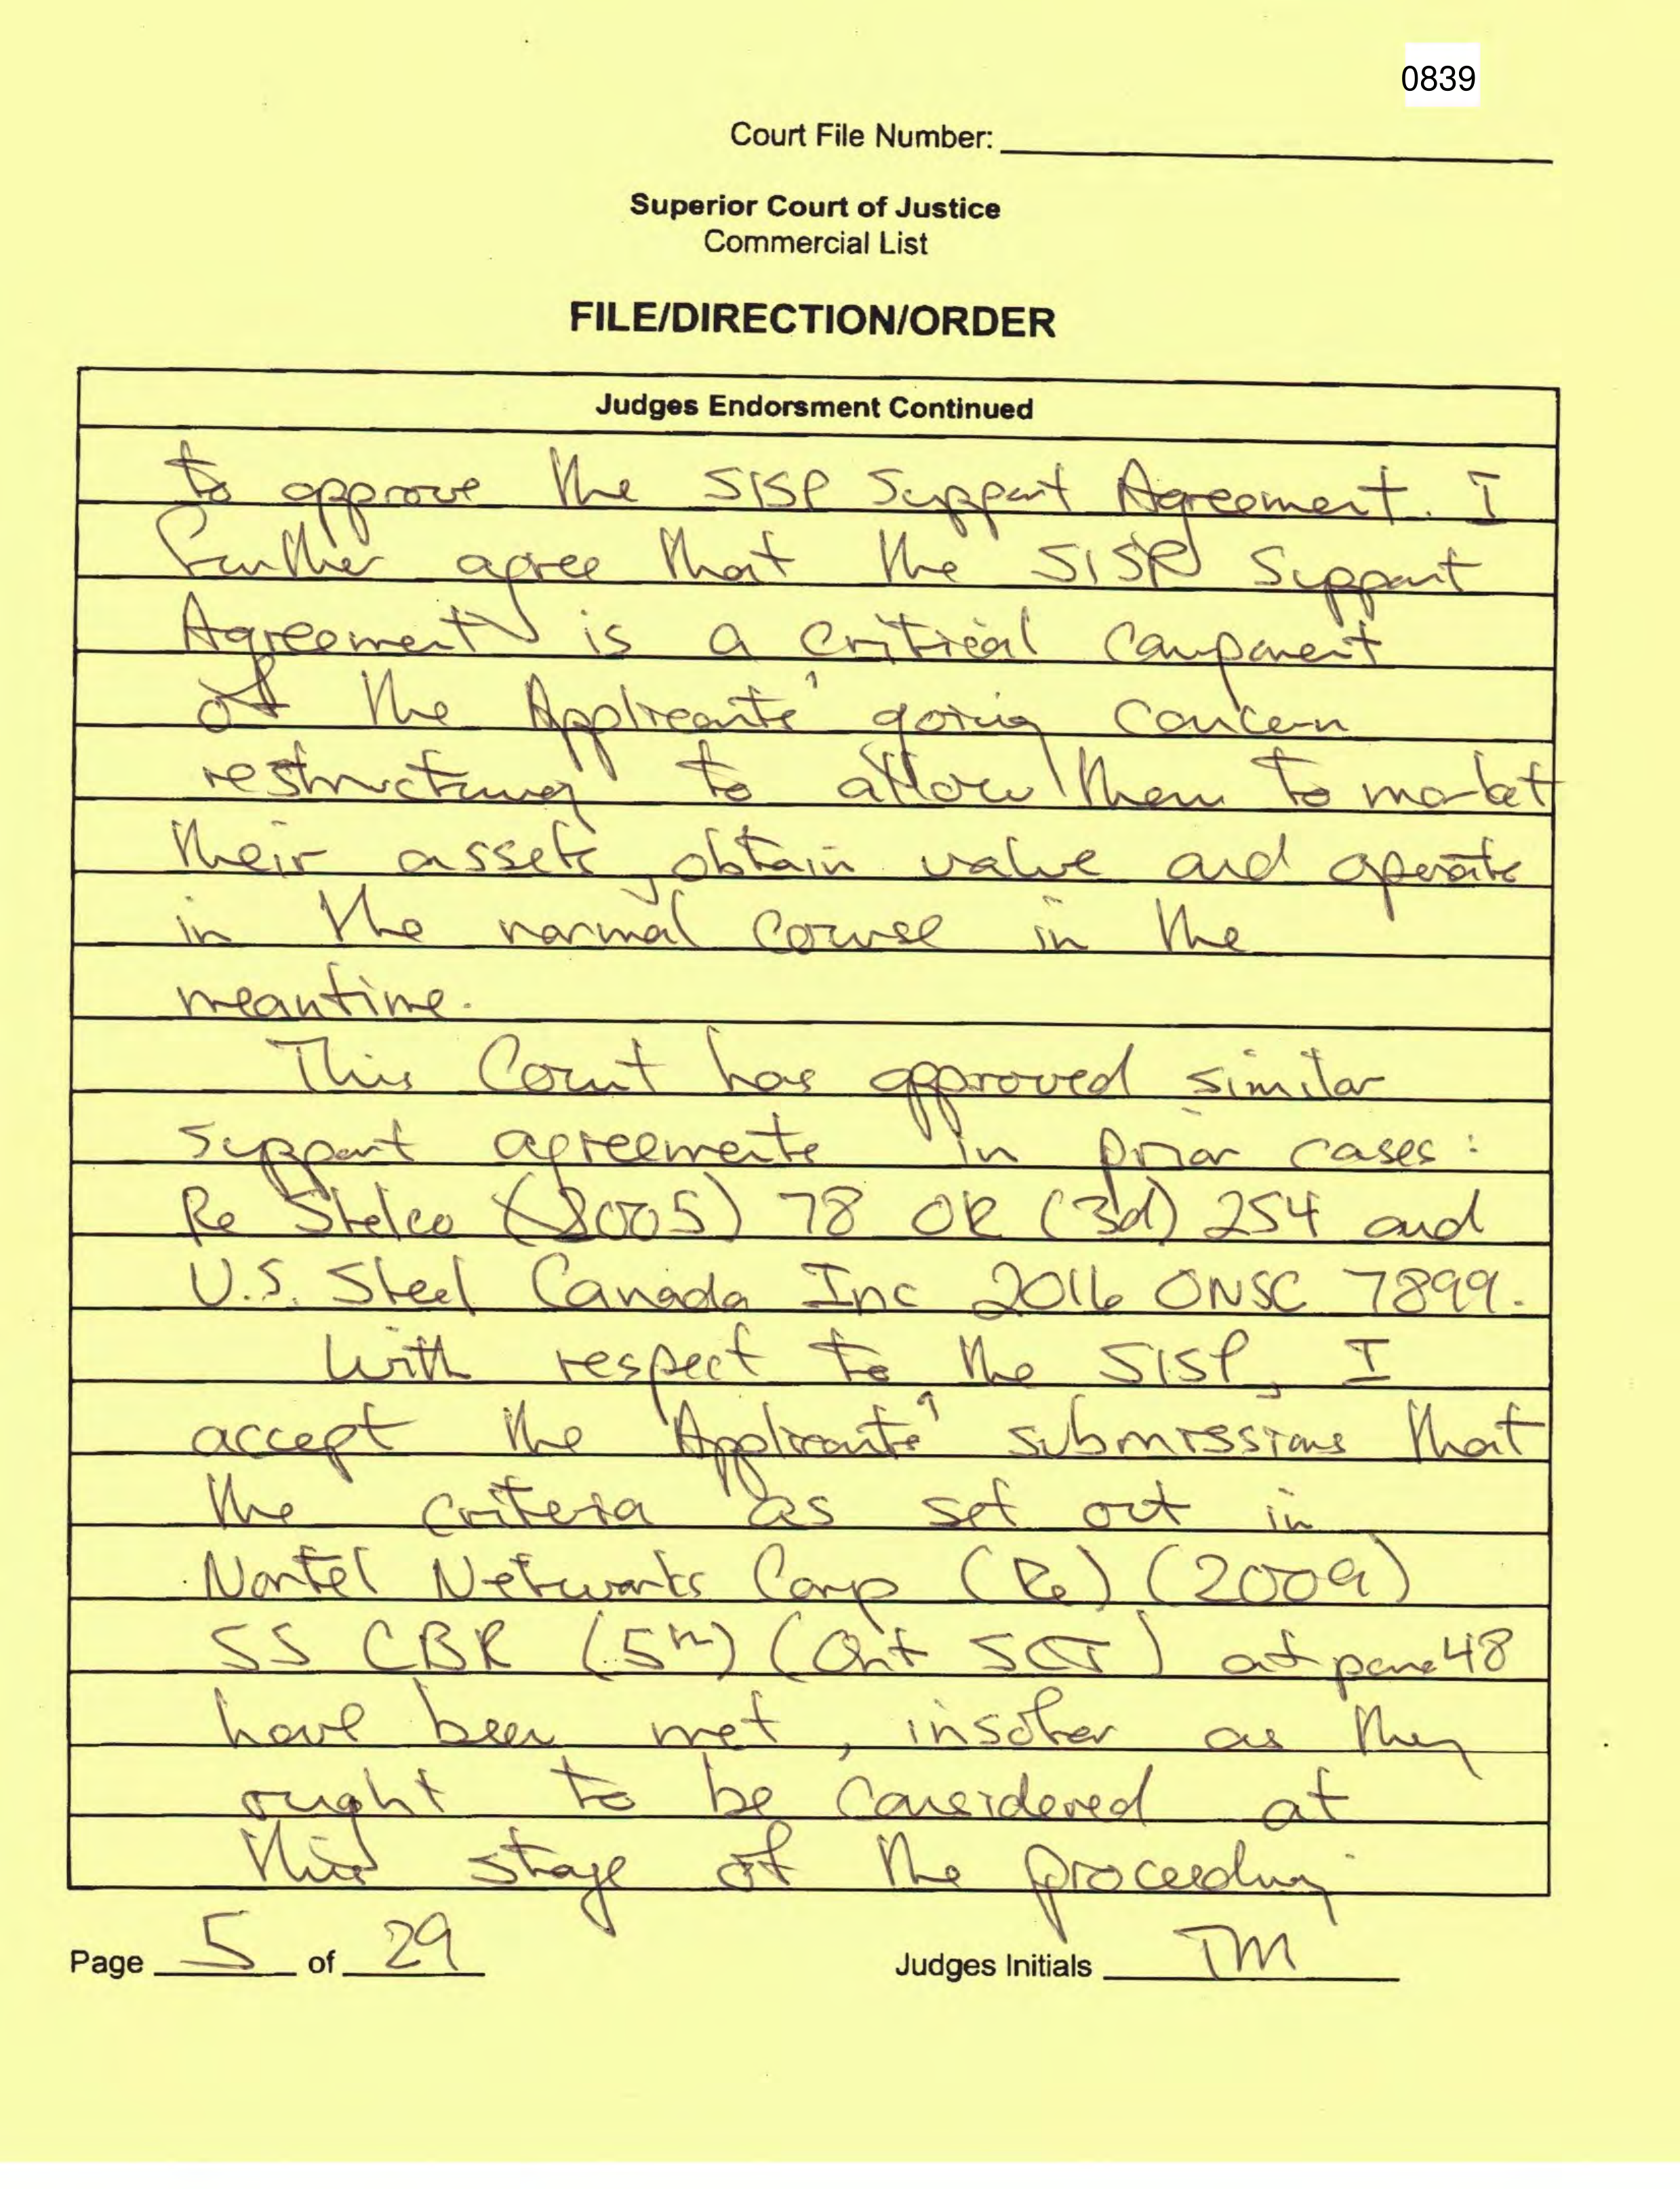 0839
Court File Number:
Superior Court of Justice
Commercial List
FILE/DIRECTION/ORDER
Judges Endorsment Continued
to approve the SISP Support Agreement. I
further agree that the SISP Support
Agreement is a critical component
of the Applicants' going concern
restructuring to allow them to market
their assets, obtain value and operate
in the normal course in the
meantime.
This Court has approved similar
support agreements in prior cases:
Re Stelco (2005) 78 OR (3d) 254 and
U.S. Steel Canada Inc 2016 ONSC 7899.
With respect to the SISP, I
accept the Applicants' submissions that
the criteria as set out in
Nortel Networks Corp (Re) (2009)
55 CBR (5th) (Ont SCJ) at para 48
have been met, insofar as they
ought to be considered at
this stage of the proceeding
Page 5 of 29
Judges Initials TM